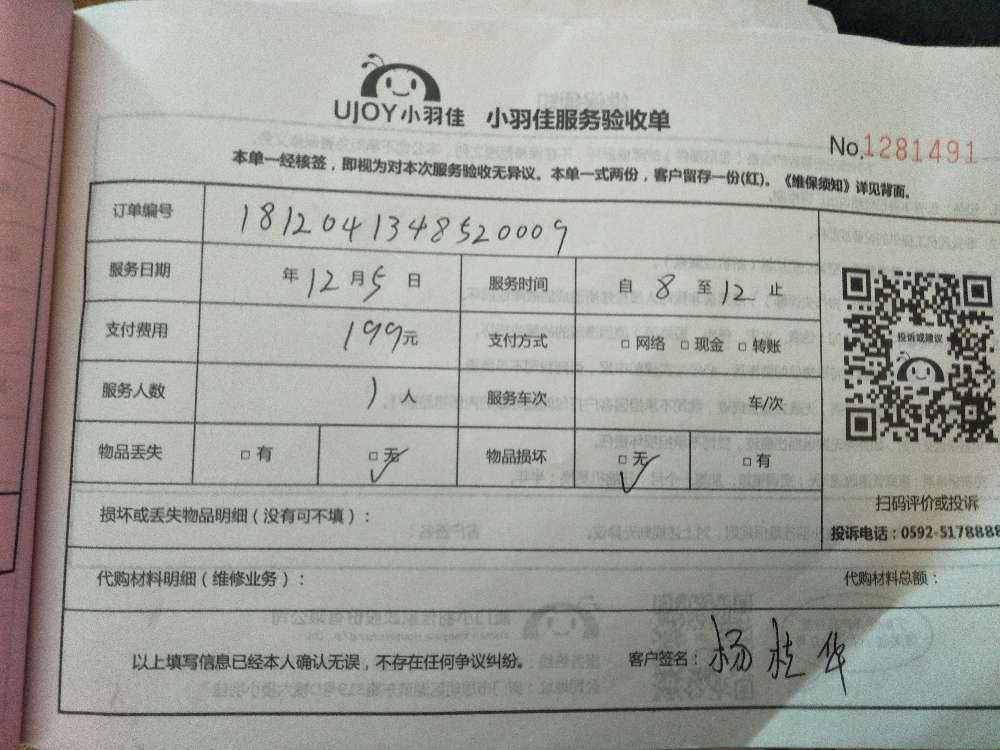 UJOY小羽佳 小羽佳服务验收单
No.1281491
本单一经核签，即视为对本次服务验收无异议。本单一式两份，客户留存一份(红)。《维保须知》详见背面。
订单编号 18120413485520009
服务日期 年12月5日 服务时间 自8至12止
支付费用 199元 支付方式 □网络 □现金 □转账
投诉或建议
服务人数 1人 服务车次 车/次
物品丢失 □有 □无 物品损坏 □无 □有
扫码评价或投诉
损坏或丢失物品明细（没有可不填）：
投诉电话：0592-5178888
代购材料明细（维修业务）： 代购材料总额：
以上填写信息已经本人确认无误，不存在任何争议纠纷。 客户签名：杨桂华